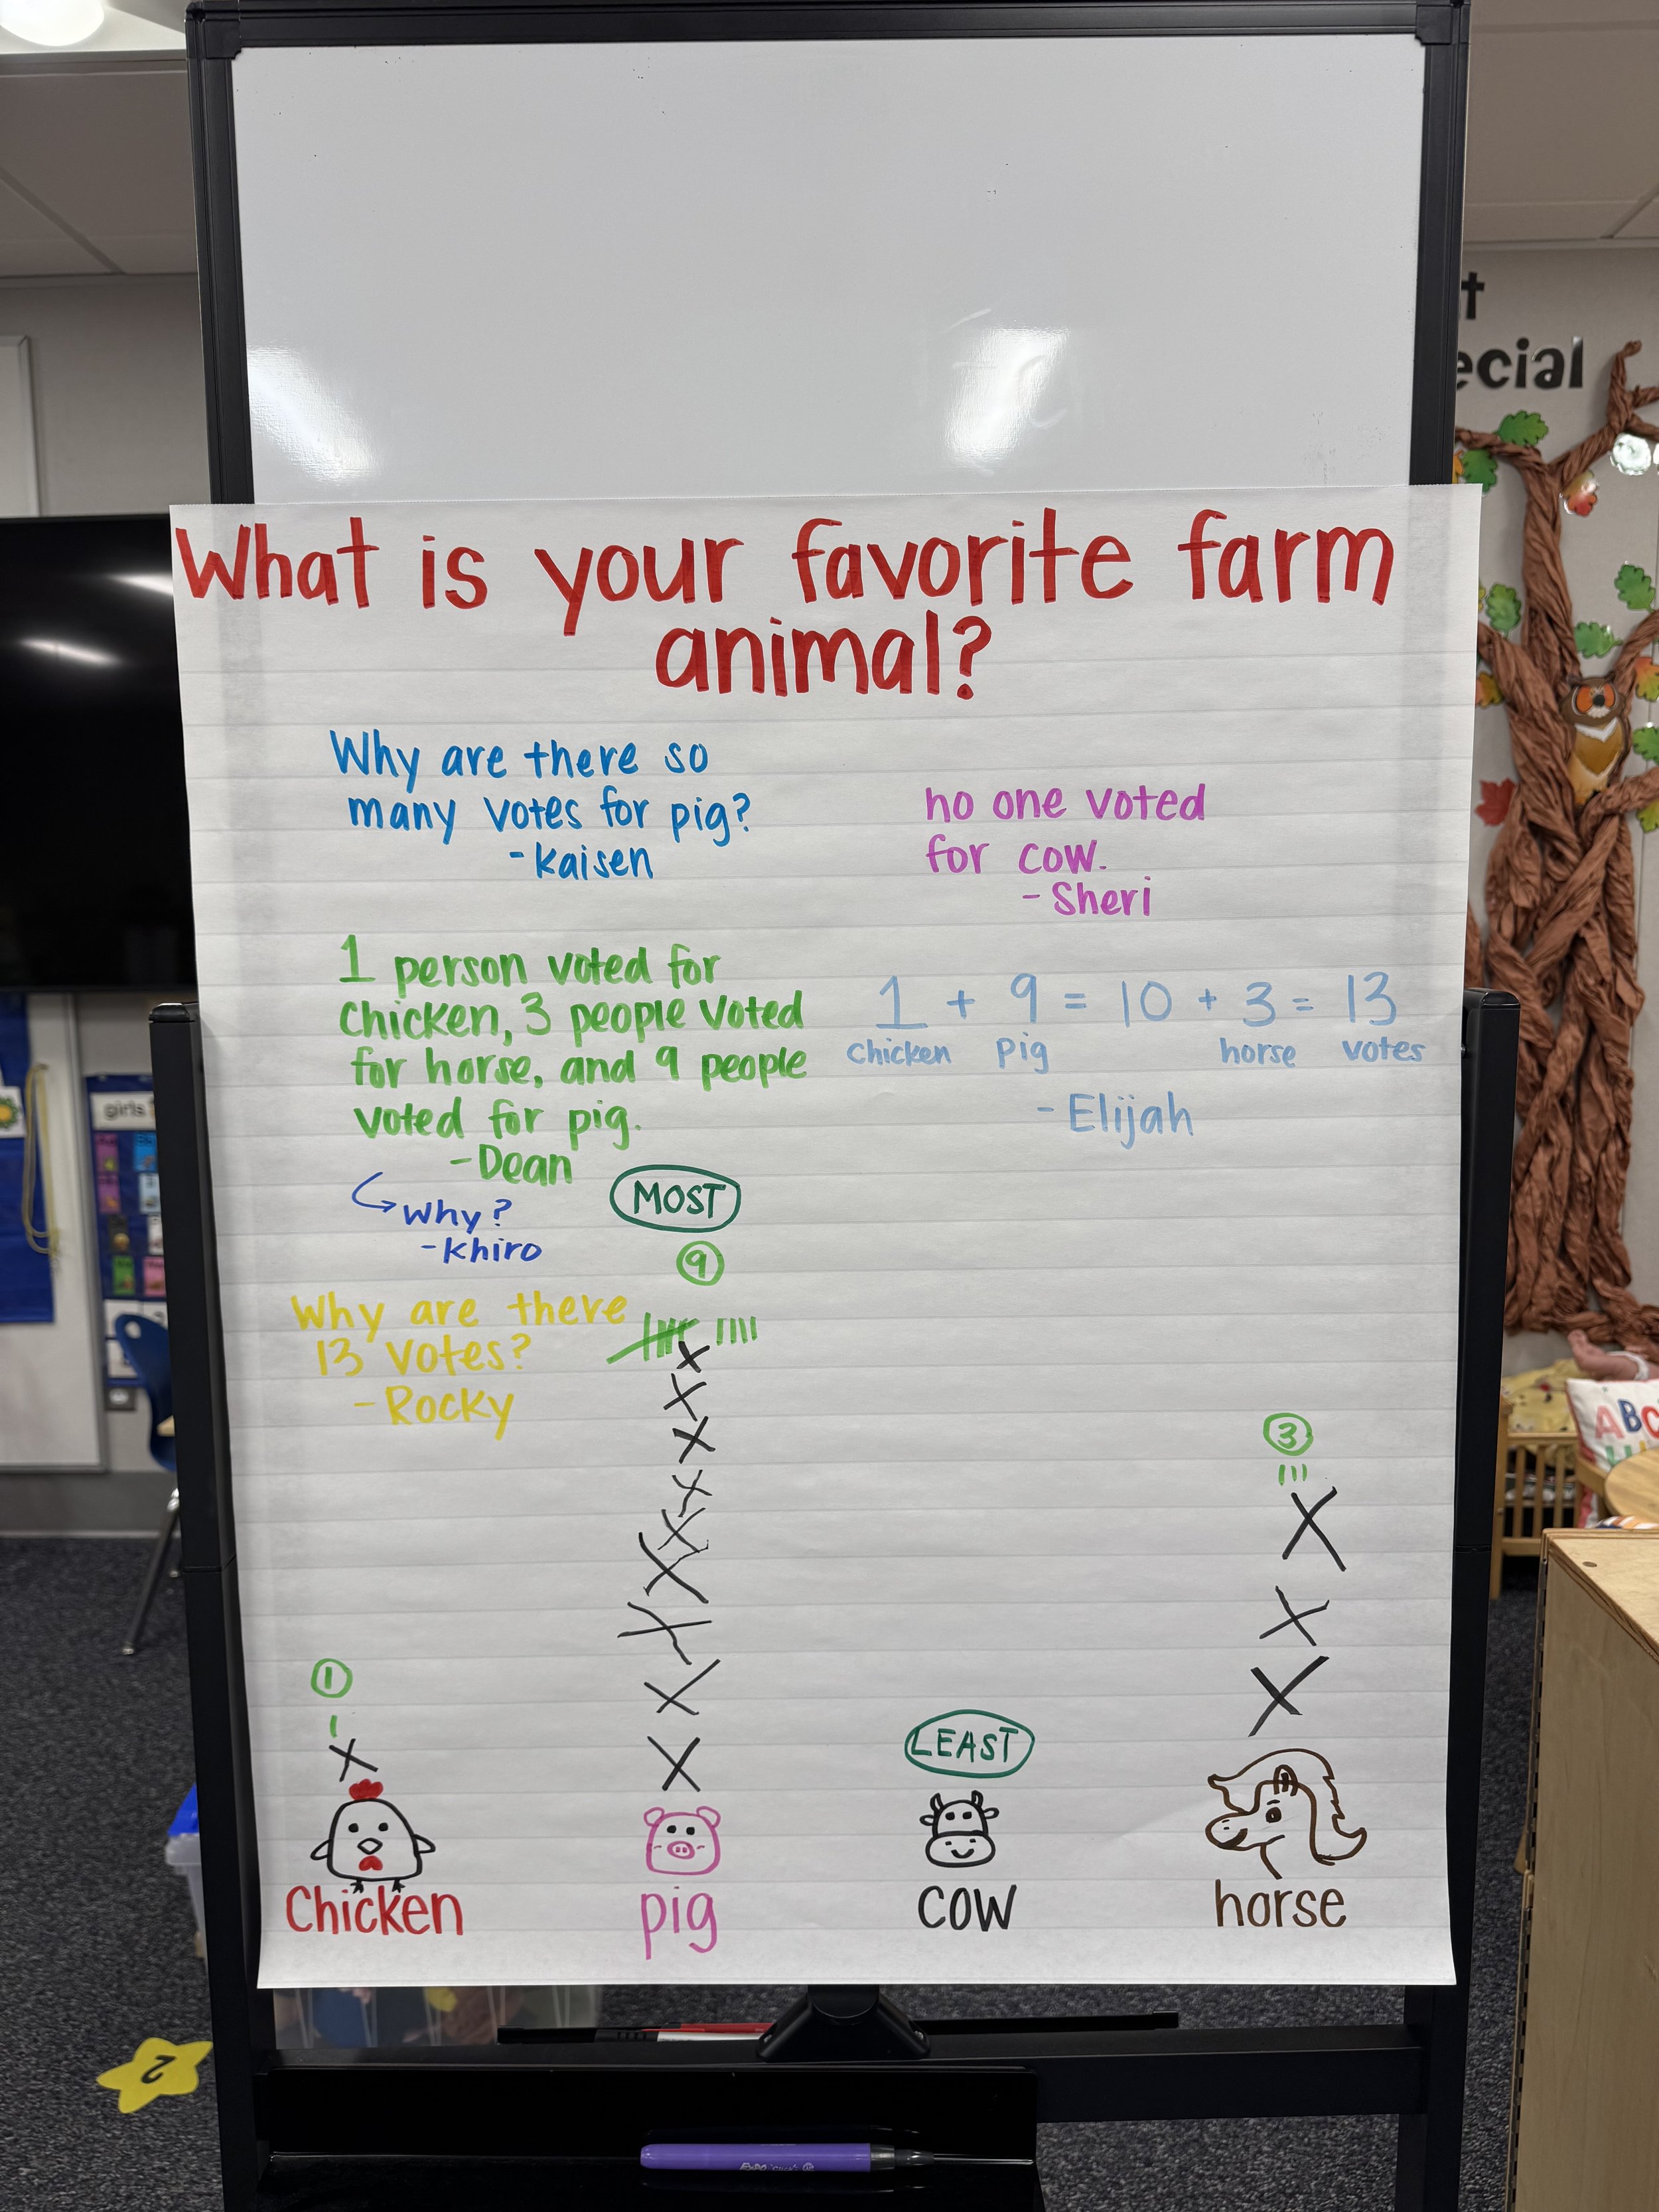 What is your favorite farm
animal?
Why are there so
many votes for pig?
-kaisen
no one voted
for cow.
- Sheri
1 person voted for
chicken, 3 people voted
for horse, and 9 people
voted for pig.
-Dean
Why?
-Khiro
1 + 9 = 10 + 3 = 13
chicken pig horse votes
- Elijah
MOST
9
Why are there
13 votes?
-Rocky
3
1
LEAST
Chicken pig cow horse
t
ecial
girls
ABC
2